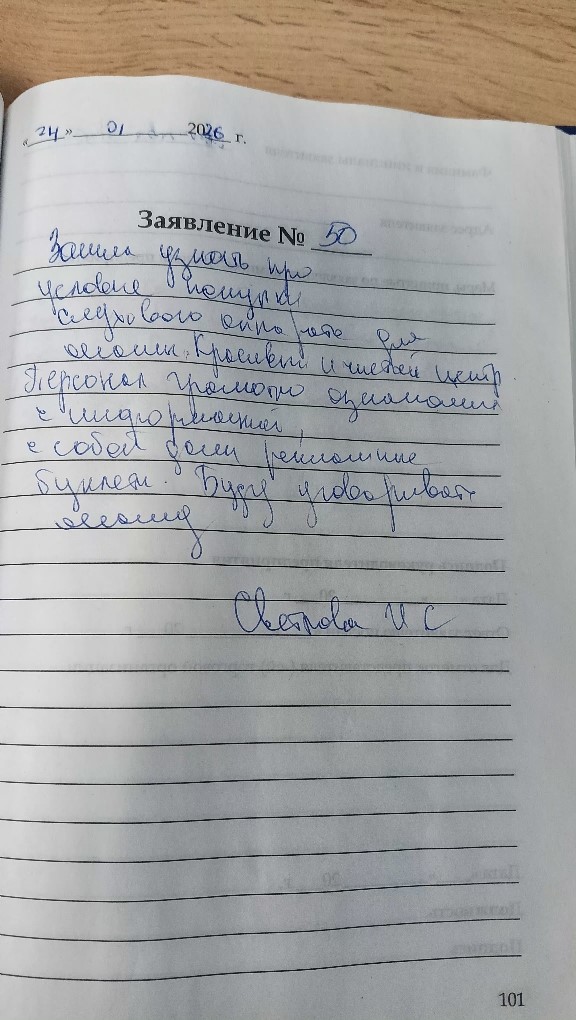 « 24 » 01 2026 г.
Заявление № 50
Зашла узнать про
условие покупки
слухового аппарата для
мамы. Красивый и чистый центр.
Персонал грамотно ознакомил
с информацией,
с собой дали рекламные
буклеты. Буду уговаривать
маму
Светрова И С
101